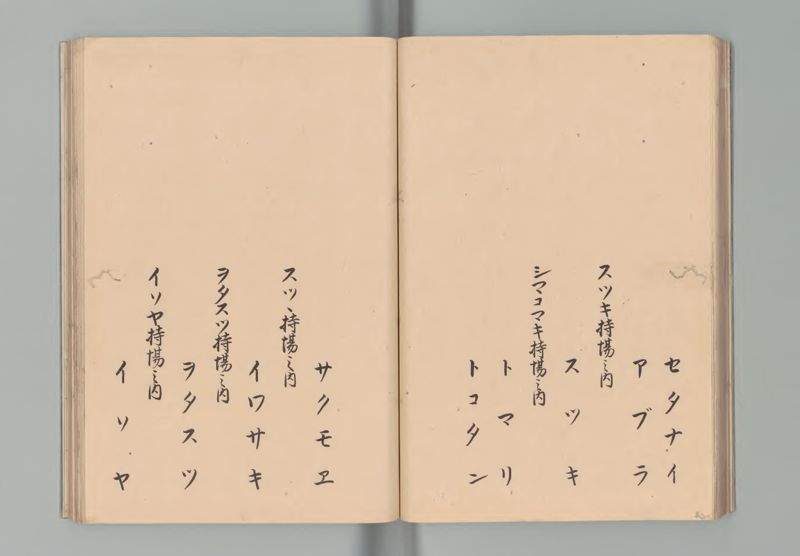 セタナイ
アブラ
スツキ持場之内
スツキ
シマコマキ持場之内
トマリ
トコタン
サクモヱ
スツヽ持場之内
イワサキ
ヲタスツ持場之内
ヲタスツ
イソヤ持場之内
イソヤ